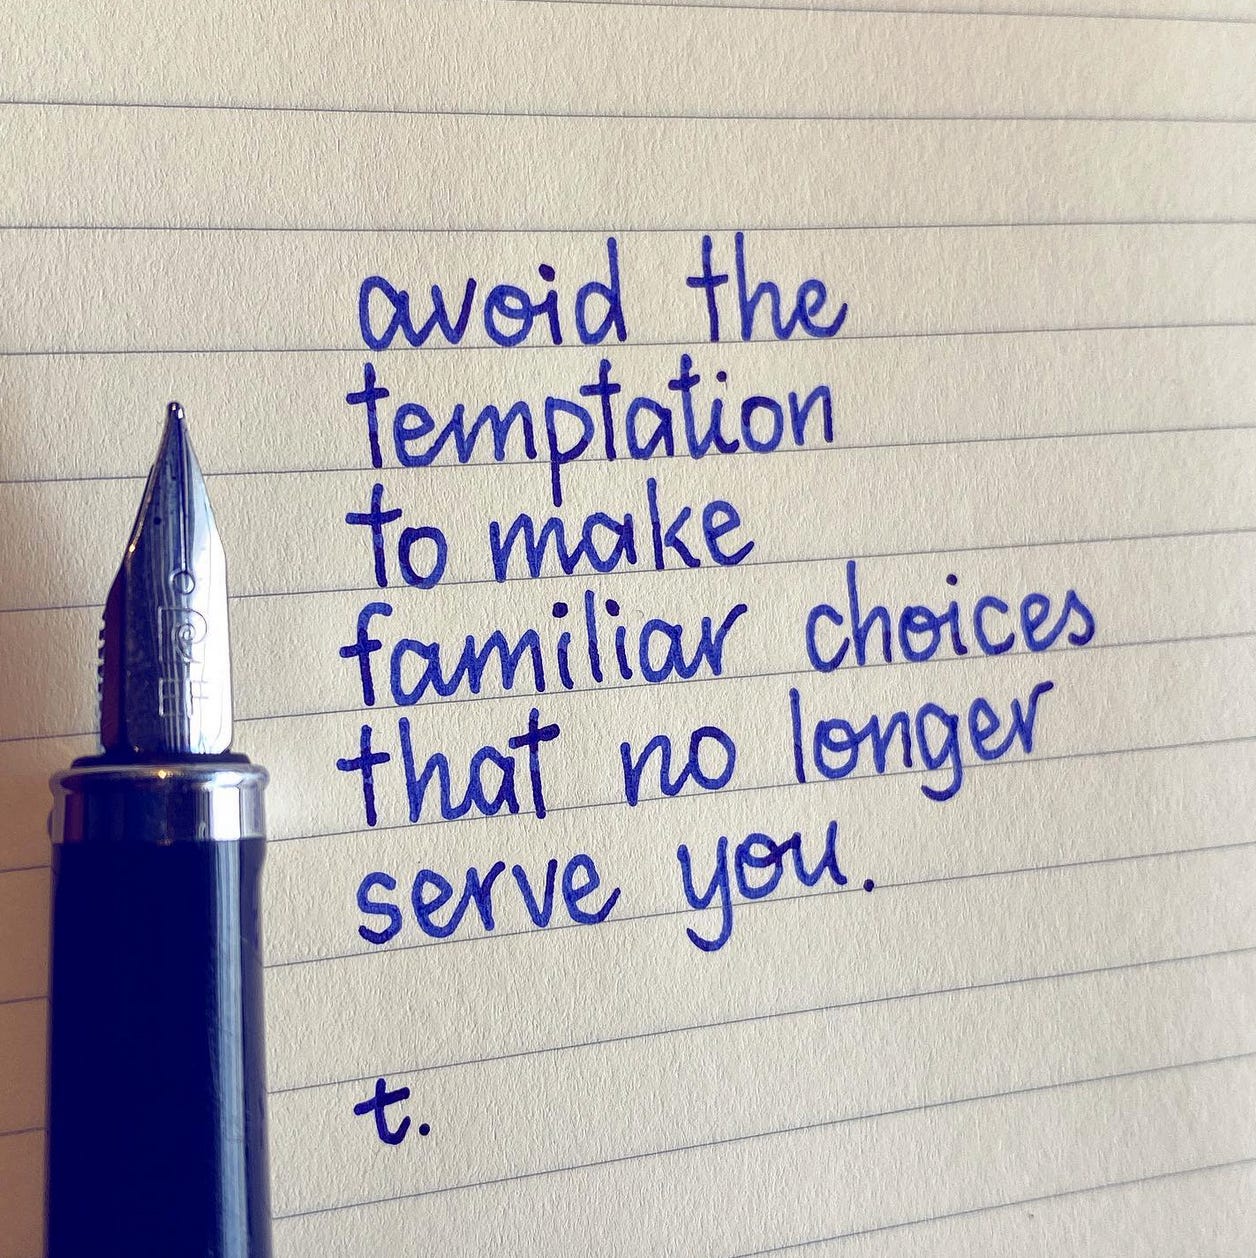 avoid the
temptation
to make
familiar choices
that no longer
serve you.
t.